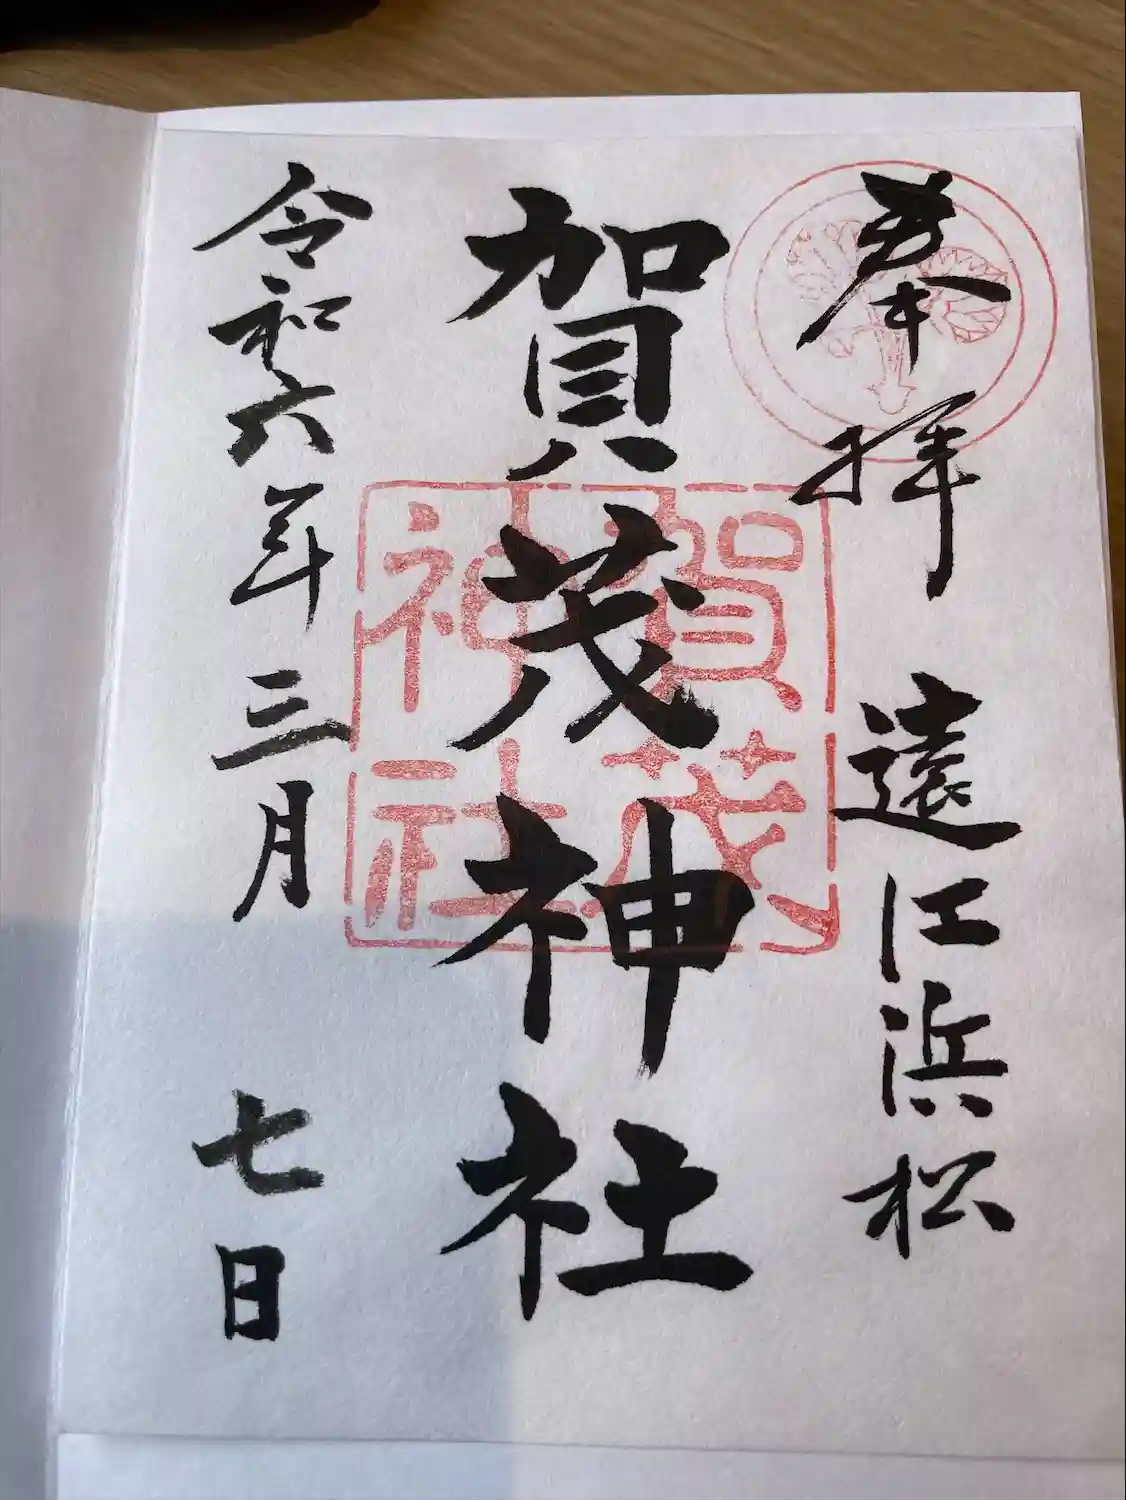 奉拝 遠江浜松
賀茂神社
賀茂
神社
令和六年三月七日